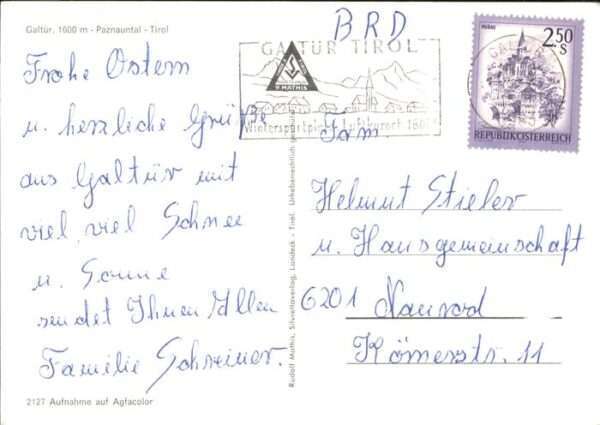 Galtür, 1600 m - Paznauntal - Tirol
Frohe Ostern
u. herzliche Grüße
aus Galtür mit
viel, viel Schnee
u. Sonne
sendet Ihnen Allen
Familie Schreiner.
2127 Aufnahme auf Agfacolor
Rudolf Mathis, Silvrettaverlag, Landeck - Tirol. Urheberrechtlich
BRD
GALTÜR TIROL
R MATHIS
Wintersportplatz Luftkurort
MURAU
2.50
S
REPUBLIK ÖSTERREICH
Fam.
Helmut Stieler
u. Hausgemeinschaft
6201 Naurod
Römerstr. 11